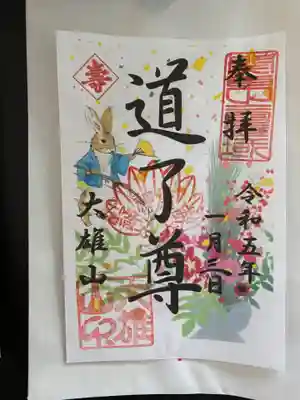 奉拝
令和五年
一月三日
道了尊
壽
大雄山